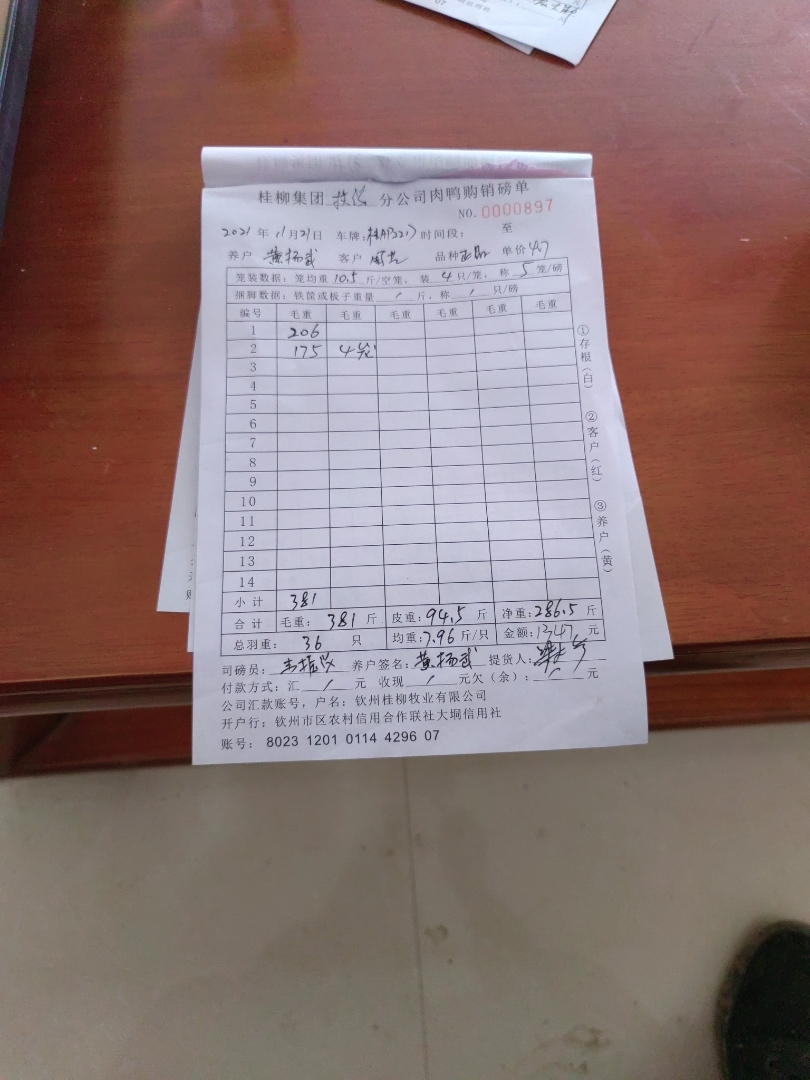 桂柳集团 分公司肉鸭购销磅单
NO. 0000897
2021 年 11 月 21 日 车牌: 时间段: 至
养户 黄扬武 客户 品种 正品 单价 4.7
笼装数据: 笼均重 10.5 斤/空笼, 装 4 只/笼, 称 5 笼/磅
捆脚数据: 铁筐或板子重量 / 斤, 称 / 只/磅
编号 毛重 毛重 毛重 毛重 毛重 毛重
1 206
2 175 4笼
3
4
5
6
7
8
9
10
11
12
13
14
小计 381
合计 毛重: 381 斤 皮重: 94.5 斤 净重: 286.5 斤
总羽重: 36 只 均重: 7.96 斤/只 金额: 1347 元
司磅员: 养户签名: 黄扬武 提货人:
付款方式: 汇 / 元 收现 / 元欠(余): / 元
公司汇款账号, 户名: 钦州桂柳牧业有限公司
开户行: 钦州市区农村信用合作联社大垌信用社
账号: 8023 1201 0114 4296 07
①存根(白) ②客户(红) ③养户(黄)